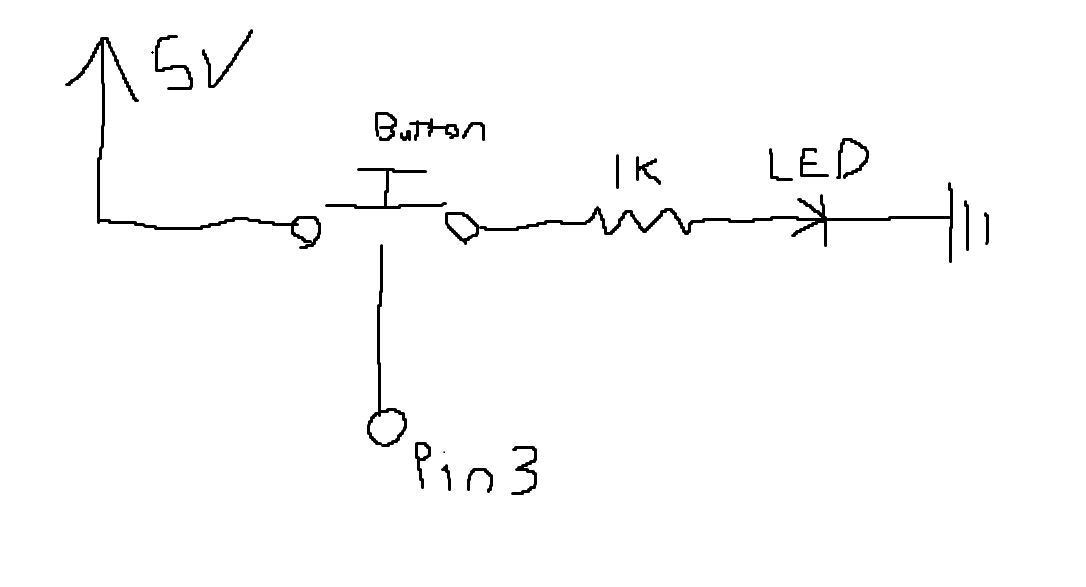 5V
Button
1K
LED
Pin3